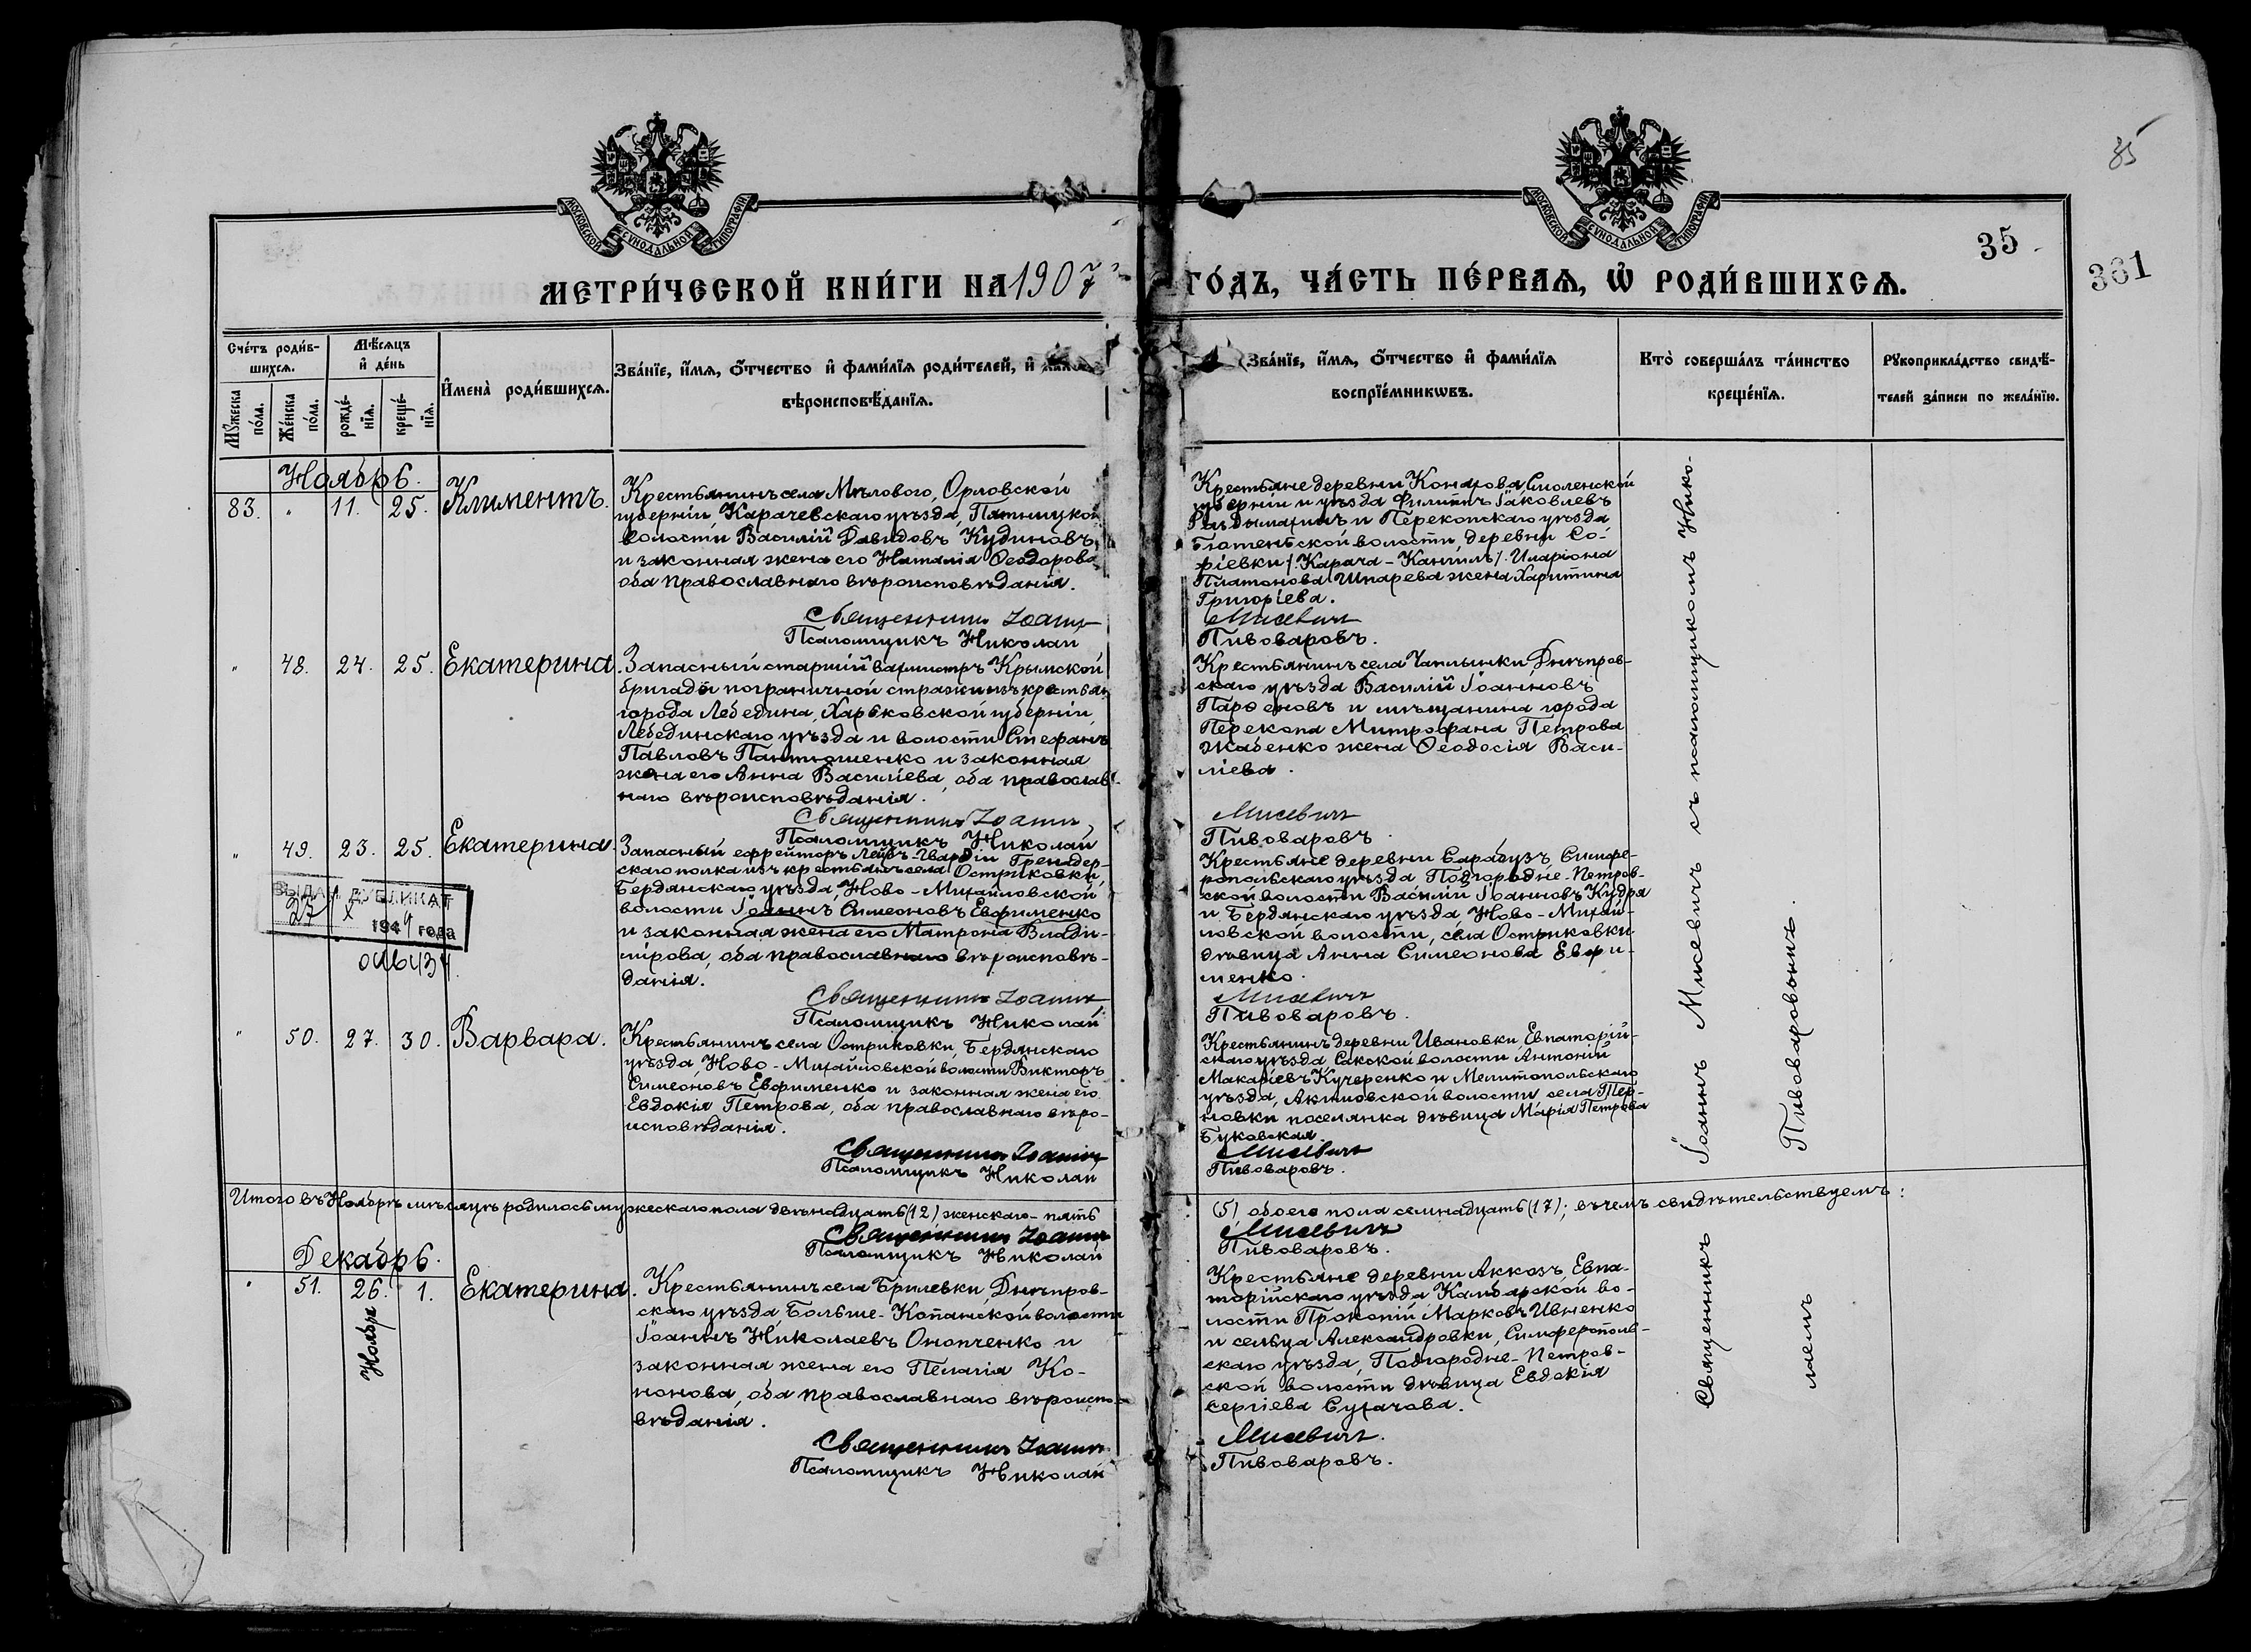 35
35
361
МОСКОВСКОЙ СѴНОДАЛЬНОЙ ТИПОГРАФІИ
МОСКОВСКОЙ СѴНОДАЛЬНОЙ ТИПОГРАФІИ
МЕТРИ́ЧЕСКОЙ КНИ́ГИ НА 1907 ГО́ДЪ, ЧА́СТЬ ПЕ́РВАѦ, Ѡ҆ РОДИ́ВШИХСѦ.
Сче́тъ роди́в-
шихсѧ.
Мꙋ́жеска по́ла.
Же́нска по́ла.
Мѣ́сѧцъ
и҆ де́нь
рожде́-
нїѧ.
креще́-
нїѧ.
И҆мена̀ роди́вшихсѧ.
Зва́нїе, и҆́мѧ, ѻ҆́тчество и҆ фами́лїѧ роди́телей, и҆
вѣроисповѣ́данїѧ.
Зва́нїе, и҆́мѧ, ѻ҆́тчество и҆ фами́лїѧ
воспрїе́мникѡвъ.
Кто̀ соверша́лъ та́инство
креще́нїѧ.
Рꙋкоприкла́дство свидѣ́-
телей за́писи по жела́нїю.
Ноябрь.
83. " 11. 25. Климентъ.
Крестьянинъ села Мѣлового, Орловской
губерніи, Карачевскаго уѣзда, Пятницкой
волости Василій Давидовъ Кудиновъ
и законная жена его Наталія Ѳеодорова
оба православнаго вѣроисповѣданія.
Священникъ Іоаннъ
Псаломщикъ Николай
Крестьяне деревни Смоленской
губерніи и уѣзда Филиппъ Іаковлевъ
и Перекопскаго уѣзда
волости, деревни Со-
фіевки /:Карача-Кангилъ:/ Иларіона
Платонова Шпарева жена Харитина
Григоріева.
Мисевичъ
Пивоваровъ.
" 48. 24. 25. Екатерина.
Запасный старшій вахмистръ Крымской
бригады пограничной стражи изъ крестьянъ
города Лебедина, Харьковской губерніи,
Лебединскаго уѣзда и волости Стефанъ
Павловъ Пантюшенко и законная
жена его Анна Василіева, оба православ-
наго вѣроисповѣданія.
Священникъ Іоаннъ
Псаломщикъ Николай
Крестьянинъ села Чаплынки Днѣпров-
скаго уѣзда Василій Іоанновъ
Парѳеновъ и мѣщанина города
Перекопа Митрофана Петрова
Жабенко жена Ѳеодосія Васи-
ліева.
Мисевичъ
Пивоваровъ.
" 49. 23. 25. Екатерина.
Запасный ефрейторъ Лейбъ-Гвардіи Гренадер-
скаго полка изъ крестьянъ села Остриковки,
Бердянскаго уѣзда, Ново-Михайловской
волости Іоаннъ Симеоновъ Евфименко
и законная жена его Матрона Влади-
мірова, оба православнаго вѣроисповѣ-
данія.
Священникъ Іоаннъ
Псаломщикъ Николай
Крестьяне деревни Сарабузъ, Симфе-
ропольскаго уѣзда Подгородне-Петров-
ской волости Василій Іоанновъ Кудря
и Бердянскаго уѣзда, Ново-Михай-
ловской волости, села Остриковки
дѣвица Анна Симеонова Евфи-
менко.
Мисевичъ
Пивоваровъ.
ВЫДАН ДУБЛИКАТ
27 X 1944 года
" 50. 27. 30. Варвара.
Крестьянинъ села Остриковки, Бердянскаго
уѣзда, Ново-Михайловской волости Викторъ
Симеоновъ Евфименко и законная жена его
Евдокія Петрова, оба православнаго вѣро-
исповѣданія.
Священникъ Іоаннъ
Псаломщикъ Николай
Крестьянинъ деревни Ивановки, Евпаторій-
скаго уѣзда, Сакской волости Антоній
Макаріевъ Кучеренко и Мелитопольскаго
уѣзда, Акимовской волости села Тер-
новки поселянка дѣвица Марія Петрова
Буковская.
Мисевичъ
Пивоваровъ.
Итого въ Ноябрѣ мѣсяцѣ родилось мужескаго пола двѣнадцать (12) женскаго - пять
(5) обоего пола семнадцать (17); въ чемъ свидѣтельствуемъ:
Священникъ Іоаннъ Мисевичъ
Псаломщикъ Николай Пивоваровъ.
Декабрь.
" 51. 26. Ноября 1. Екатерина.
Крестьянинъ села Брилевки Днѣпров-
скаго уѣзда, Больше-Копанской волости
Іоаннъ Николаевъ Онопченко и
законная жена его Пелагія Ко-
нонова, оба православнаго вѣроиспо-
вѣданія.
Священникъ Іоаннъ
Псаломщикъ Николай
Крестьяне деревни Аккозъ, Евпа-
торійскаго уѣзда Камбарской во-
лости Прокопій Марковъ Ивненко
и сельца Александровки, Симферополь-
скаго уѣзда, Подгородне-Петров-
ской волости дѣвица Евдокія
Сергіева Сухачова.
Мисевичъ.
Пивоваровъ.
Священникъ Іоаннъ Мисевичъ съ псаломщикомъ Нико-
лаемъ Пивоваровымъ.